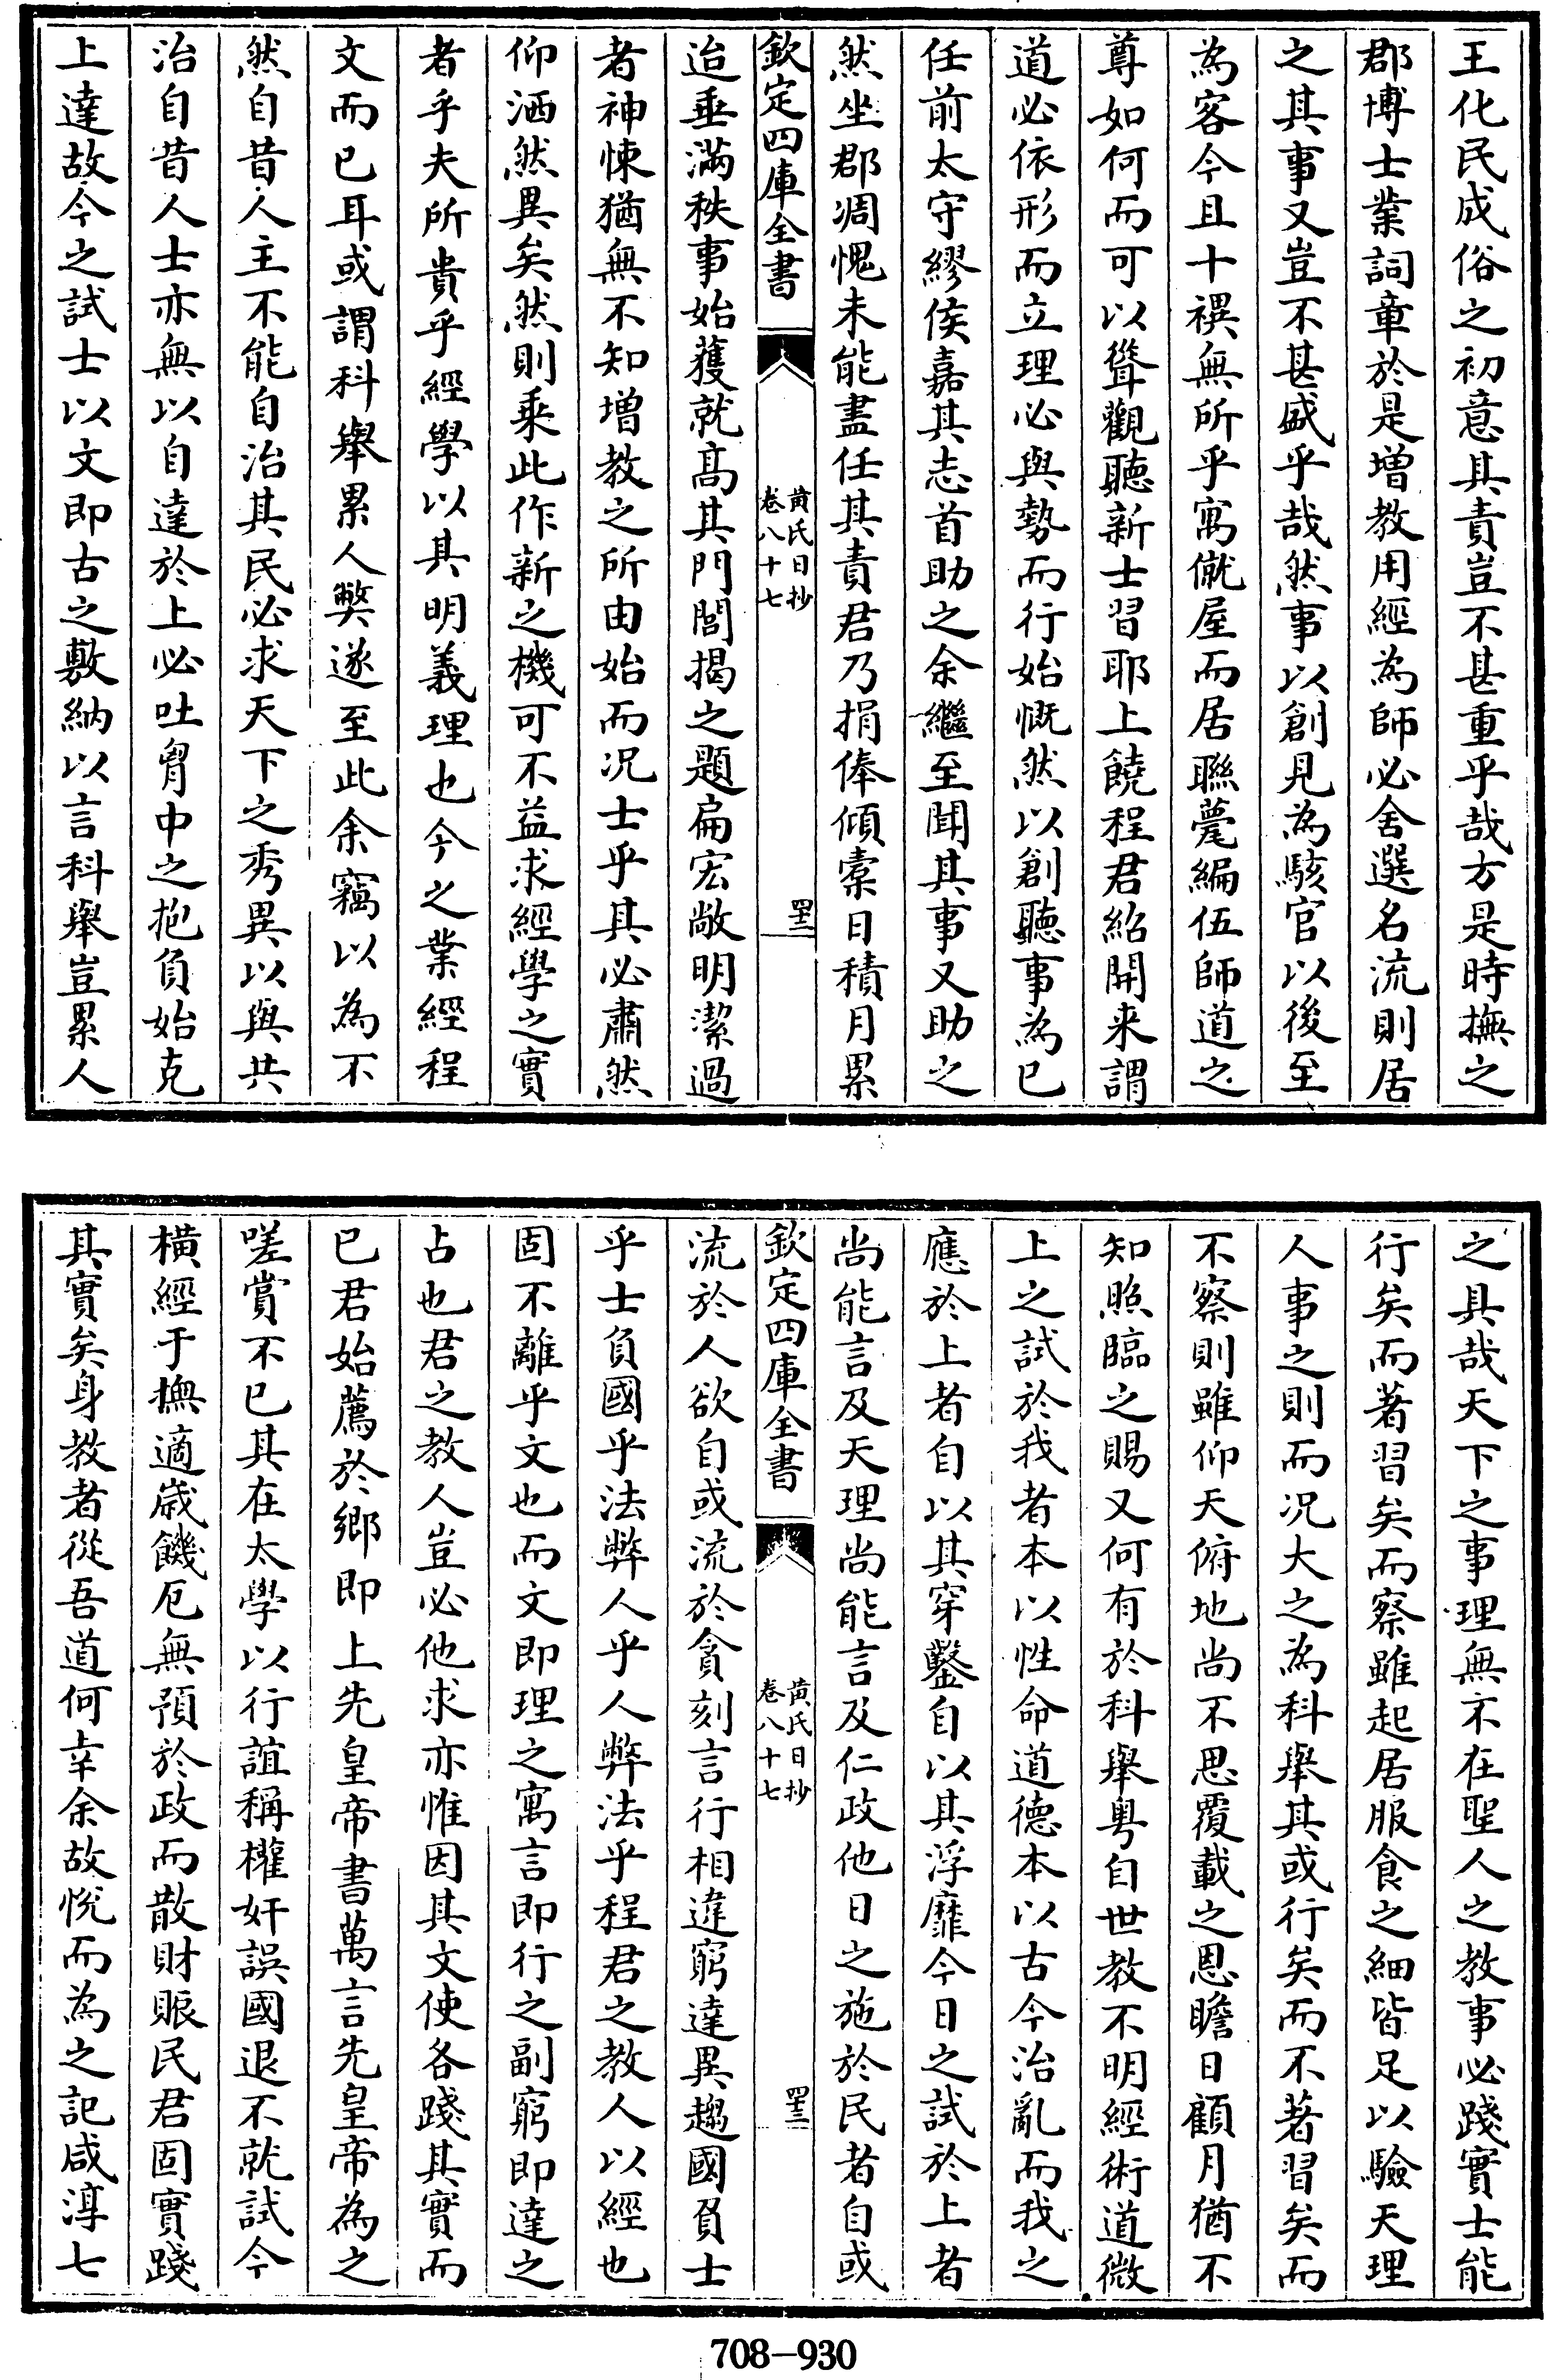 王化民成俗之初意其責豈不甚重乎哉方是時撫之
郡博士業詞章於是増教用經為師必舍選名流則居
之其事又豈不甚盛乎哉然事以創見為駭官以後至
為客今且十禩無所乎寓僦屋而居聯甍編伍師道之
尊如何而可以聳觀聽新士習耶上饒程君紹開来謂
道必依形而立理必與勢而行始慨然以創聽事為已
任前太守繆侯嘉其志首助之余繼至聞其事又助之
然坐郡凋愧未能盡任其責君乃捐俸傾橐日積月累
欽定四庫全書
黄氏日抄
卷八十七
四十二
迨垂滿秩事始獲就髙其門閭揭之題扁宏敞明潔過
者神悚猶無不知増教之所由始而况士乎其必肅然
仰洒然異矣然則乘此作新之機可不益求經學之實
者乎夫所貴乎經學以其明義理也今之業經程
文而已耳或謂科舉累人弊遂至此余竊以為不
然自昔人主不能自治其民必求天下之秀異以與共
治自昔人士亦無以自達於上必吐胷中之抱負始克
上達故今之試士以文即古之敷納以言科舉豈累人
之具哉天下之事理無不在聖人之教事必踐實士能
行矣而著習矣而察雖起居服食之細皆足以驗天理
人事之則而况大之為科舉其或行矣而不著習矣而
不察則雖仰天俯地尚不思覆載之恩瞻日顧月猶不
知照臨之賜又何有於科舉粤自世教不明經術道微
上之試於我者本以性命道德本以古今治亂而我之
應於上者自以其穿鑿自以其浮靡今日之試於上者
尚能言及天理尚能言及仁政他日之施於民者自或
欽定四庫全書
黄氏日抄
卷八十七
四十三
流於人欲自或流於貪刻言行相違窮達異趨國負士
乎士負國乎法弊人乎人弊法乎程君之教人以經也
固不離乎文也而文即理之寓言即行之副窮即達之
占也君之教人豈必他求亦惟因其文使各踐其實而
已君始薦於鄉即上先皇帝書萬言先皇帝為之
嗟賞不已其在太學以行誼稱權奸誤國退不就試今
橫經于撫適歳饑厄無預於政而散財賑民君固實踐
其實矣身教者從吾道何幸余故悅而為之記咸淳七
708—930